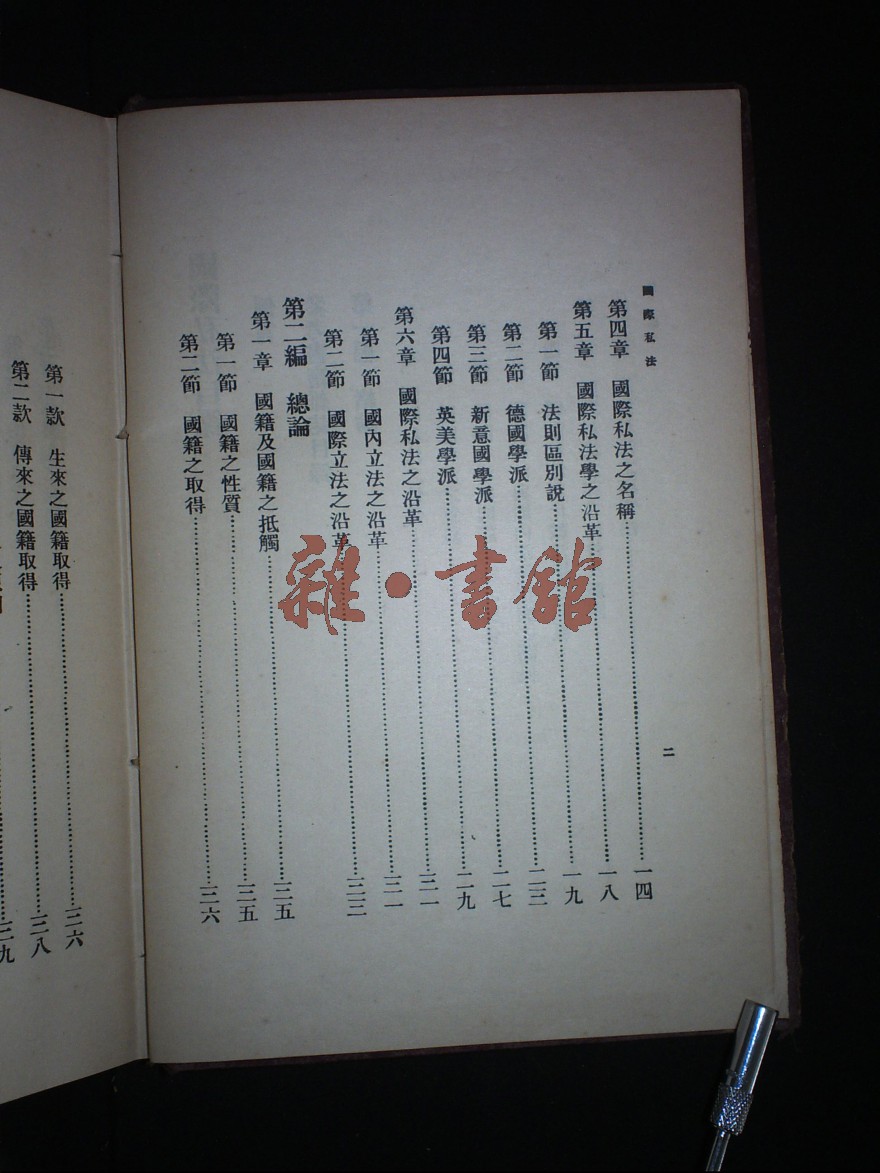 國際私法
二
第四章　國際私法之名稱……一四
第五章　國際私法學之沿革……一八
第一節　法則區別說……一九
第二節　德國學派……二三
第三節　新意國學派……二七
第四節　英美學派……二九
第六章　國際私法之沿革……三一
第一節　國內立法之沿革……三一
第二節　國際立法之沿革……三三
第二編　總論
第一章　國籍及國籍之抵觸……三五
第一節　國籍之性質……三五
第二節　國籍之取得……三六
第一款　生來之國籍取得……三六
第二款　傳來之國籍取得……三八
三九
雜·書館